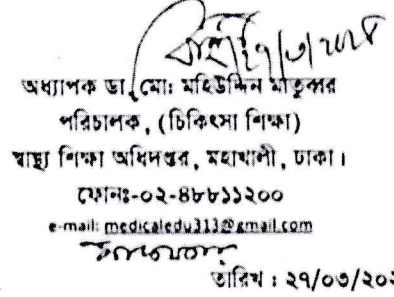 ২৭/৩/২০২৪
অধ্যাপক ডা. মো: মহিউদ্দিন মাতুব্বর
পরিচালক, (চিকিৎসা শিক্ষা)
স্বাস্থ্য শিক্ষা অধিদপ্তর, মহাখালী, ঢাকা।
ফোনঃ-০২-৪৮৮১১২০০
e-mail: medicaledu313@gmail.com
তারিখ : ২৭/০৩/২০২